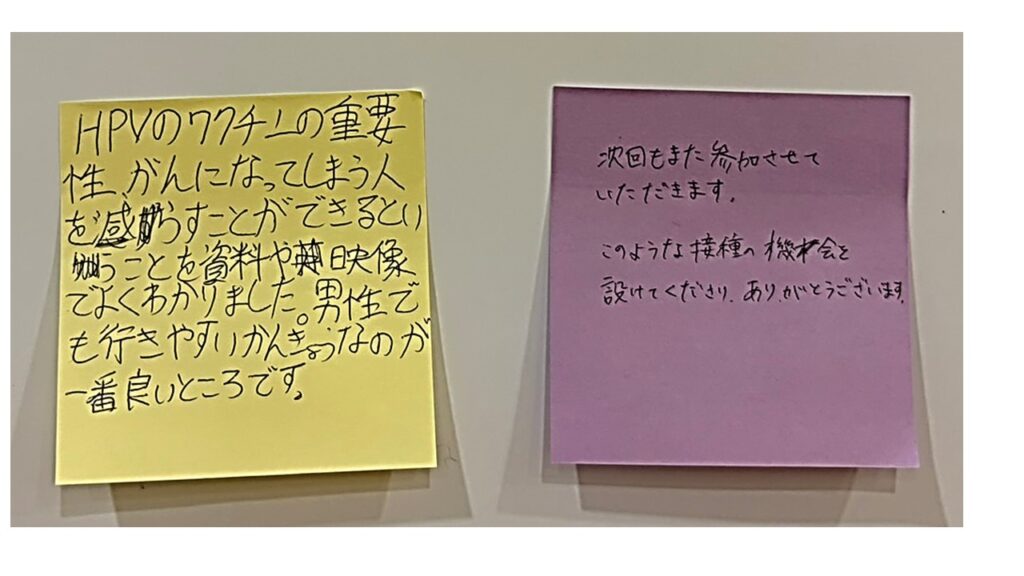 HPVのワクチンの重要
性、がんになってしまう人
を減らすことができるとい
うことを資料や映像
でよくわかりました。男性で
も行きやすいかんきょうなのが
一番良いところです。
次回もまた参加させて
いただきます。
このような接種の機会を
設けてくださり、ありがとうございます